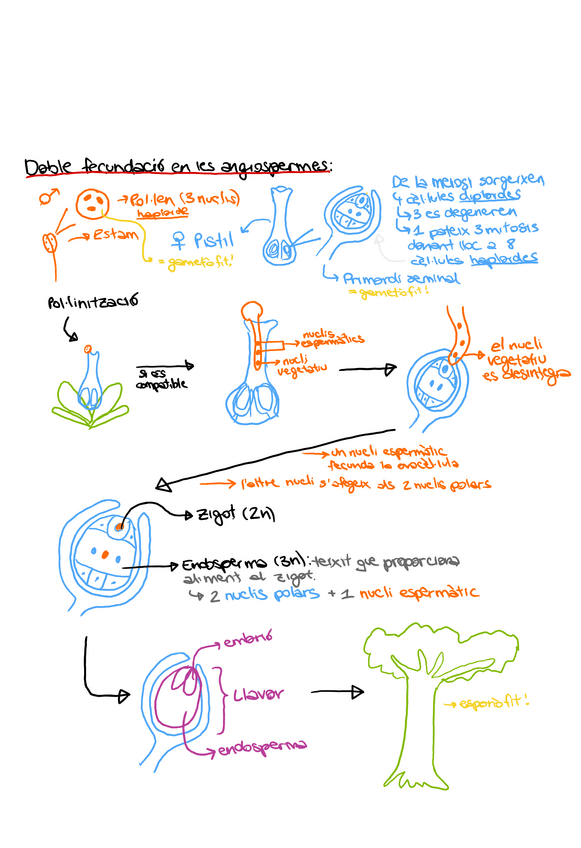 Doble fecundació en les angiospermes:
♂
→ Pol·len (3 nuclis)
haploide
→ Estam
= gametòfit!
♀ Pistil
De la meiosi sorgeixen
4 cèl·lules diploides
↳ 3 es degeneren
↳ 1 pateix 3 mitosis
donant lloc a 8
cèl·lules haploides
↳ Primordi seminal
= gametòfit!
Pol·linització
si és
compatible
nuclis
espermàtics
nucli
vegetatiu
el nucli
vegetatiu
es desintegra
→ un nucli espermàtic
fecunda la ovocèl·lula
→ l'altre nucli s'afegeix als 2 nuclis polars
Zigot (2n)
Endosperma (3n): teixit que proporciona
aliment al zigot.
↳ 2 nuclis polars + 1 nucli espermàtic
embrió
Llavor
endosperma
→ esporòfit!